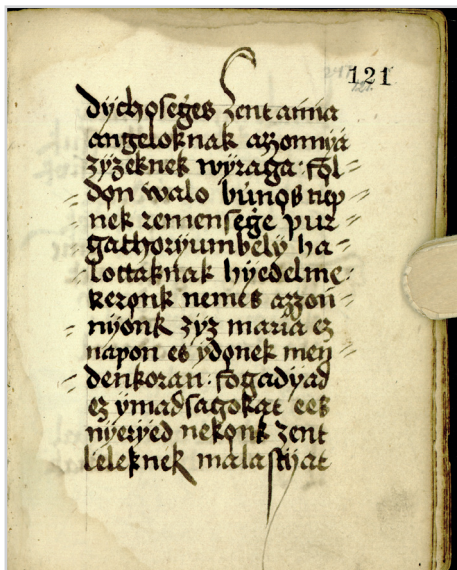 121
dychoseges zent anna
angeloknak azzonnya
zyzeknek wyraga föl=
=don walo bünos nep
=nek remensege pur=
gathoryumbely ha=
=lottaknak hyedelme
kerönk nemes azzon=
=nyonk zyz maria ez
napon es ydönek men=
=denkoran fogadyad
ez ymadsagokat ees
nyeryed nekönk zent
leleknek malastyat